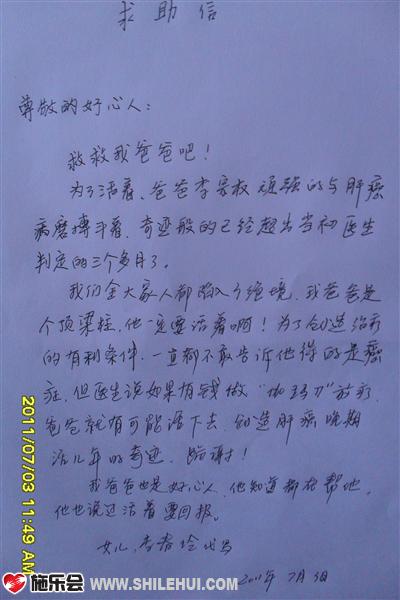 求助信
尊敬的好心人：
救救我爸爸吧！
为了活着、爸爸李家权顽强的与肝癌
病磨搏斗着、奇迹般的已经超出当初医生
判定的三个多月了。
我们全大家人都陷入了绝境、我爸爸是
个顶梁柱、他一定要活着啊！为了创造治疗
的有利条件、一直都不敢告诉他得的是癌
症、但医生说如果有钱做"伽玛刀"治疗、
爸爸就有可能活下去、创造肝癌晚期
活几年的奇迹、跪谢！
我爸爸也是好心人、他知道都在帮他。
他也说过活着要回报。
女儿、李春 代写
2011年7月3日
2011/07/03 11:49 AM
施乐会 WWW.SHILEHUI.COM